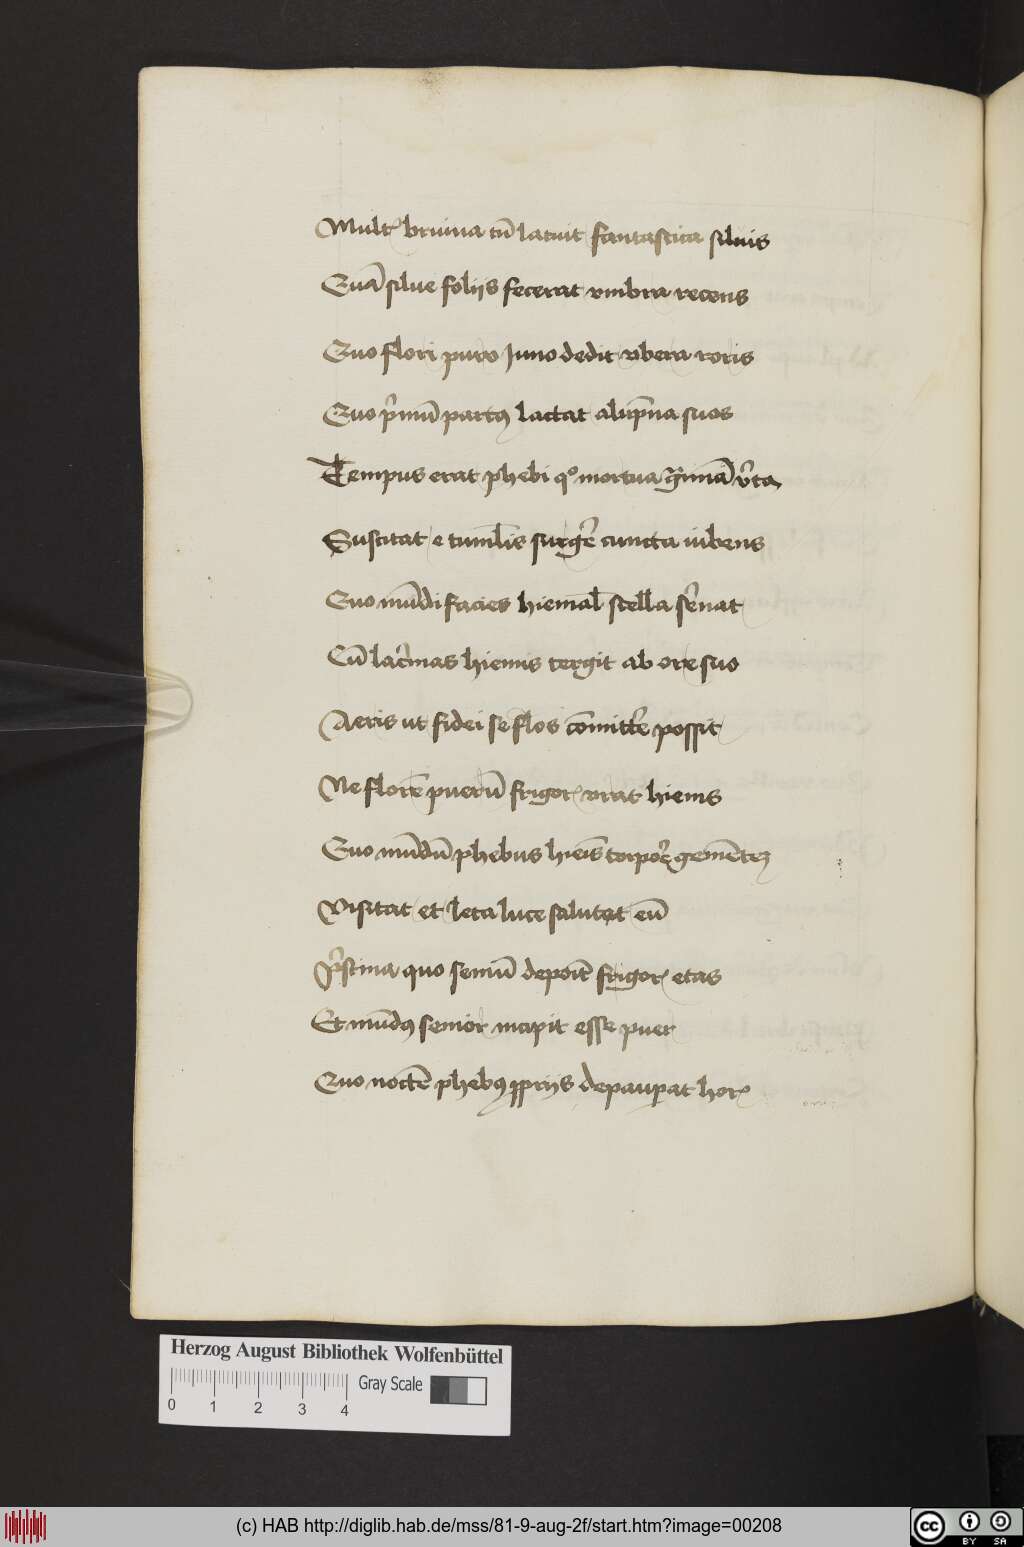 Mult᷑ bruma tū latuit fantastica siluis
Quā silue foliis fecerat vmbra recens
Quo flori puro Juno dedit vbera roris
Quo p̓mū partꝰ lactat alūpna suos
Tempus erat phebi qͦ mortua g̓mīa v̓ta
Suscitat e tuml̄is surge᷑ cuncta iubens
Quo mūdi facies hiemal̄ stella se᷑nat
Cū lac̓mas hiemis tergit ab ore suo
Aeris ut fidei se flos cōmitte᷑ possit
Ne florē puerū frigor᷑ vrat hiems
Quo mūdū phebus hieīs torpoꝛ᷑ gemētez
Visitat et leta luce salutat eū
P̓stina quo seniū depoīt frigor᷑ etas
Et mūdꝰ senior incipit esse puer
Quo noctē phebꝰ ꝓpriis depauꝑat hor᷑
Herzog August Bibliothek Wolfenbüttel
Gray Scale
0 1 2 3 4
(c) HAB http://diglib.hab.de/mss/81-9-aug-2f/start.htm?image=00208
cc BY SA